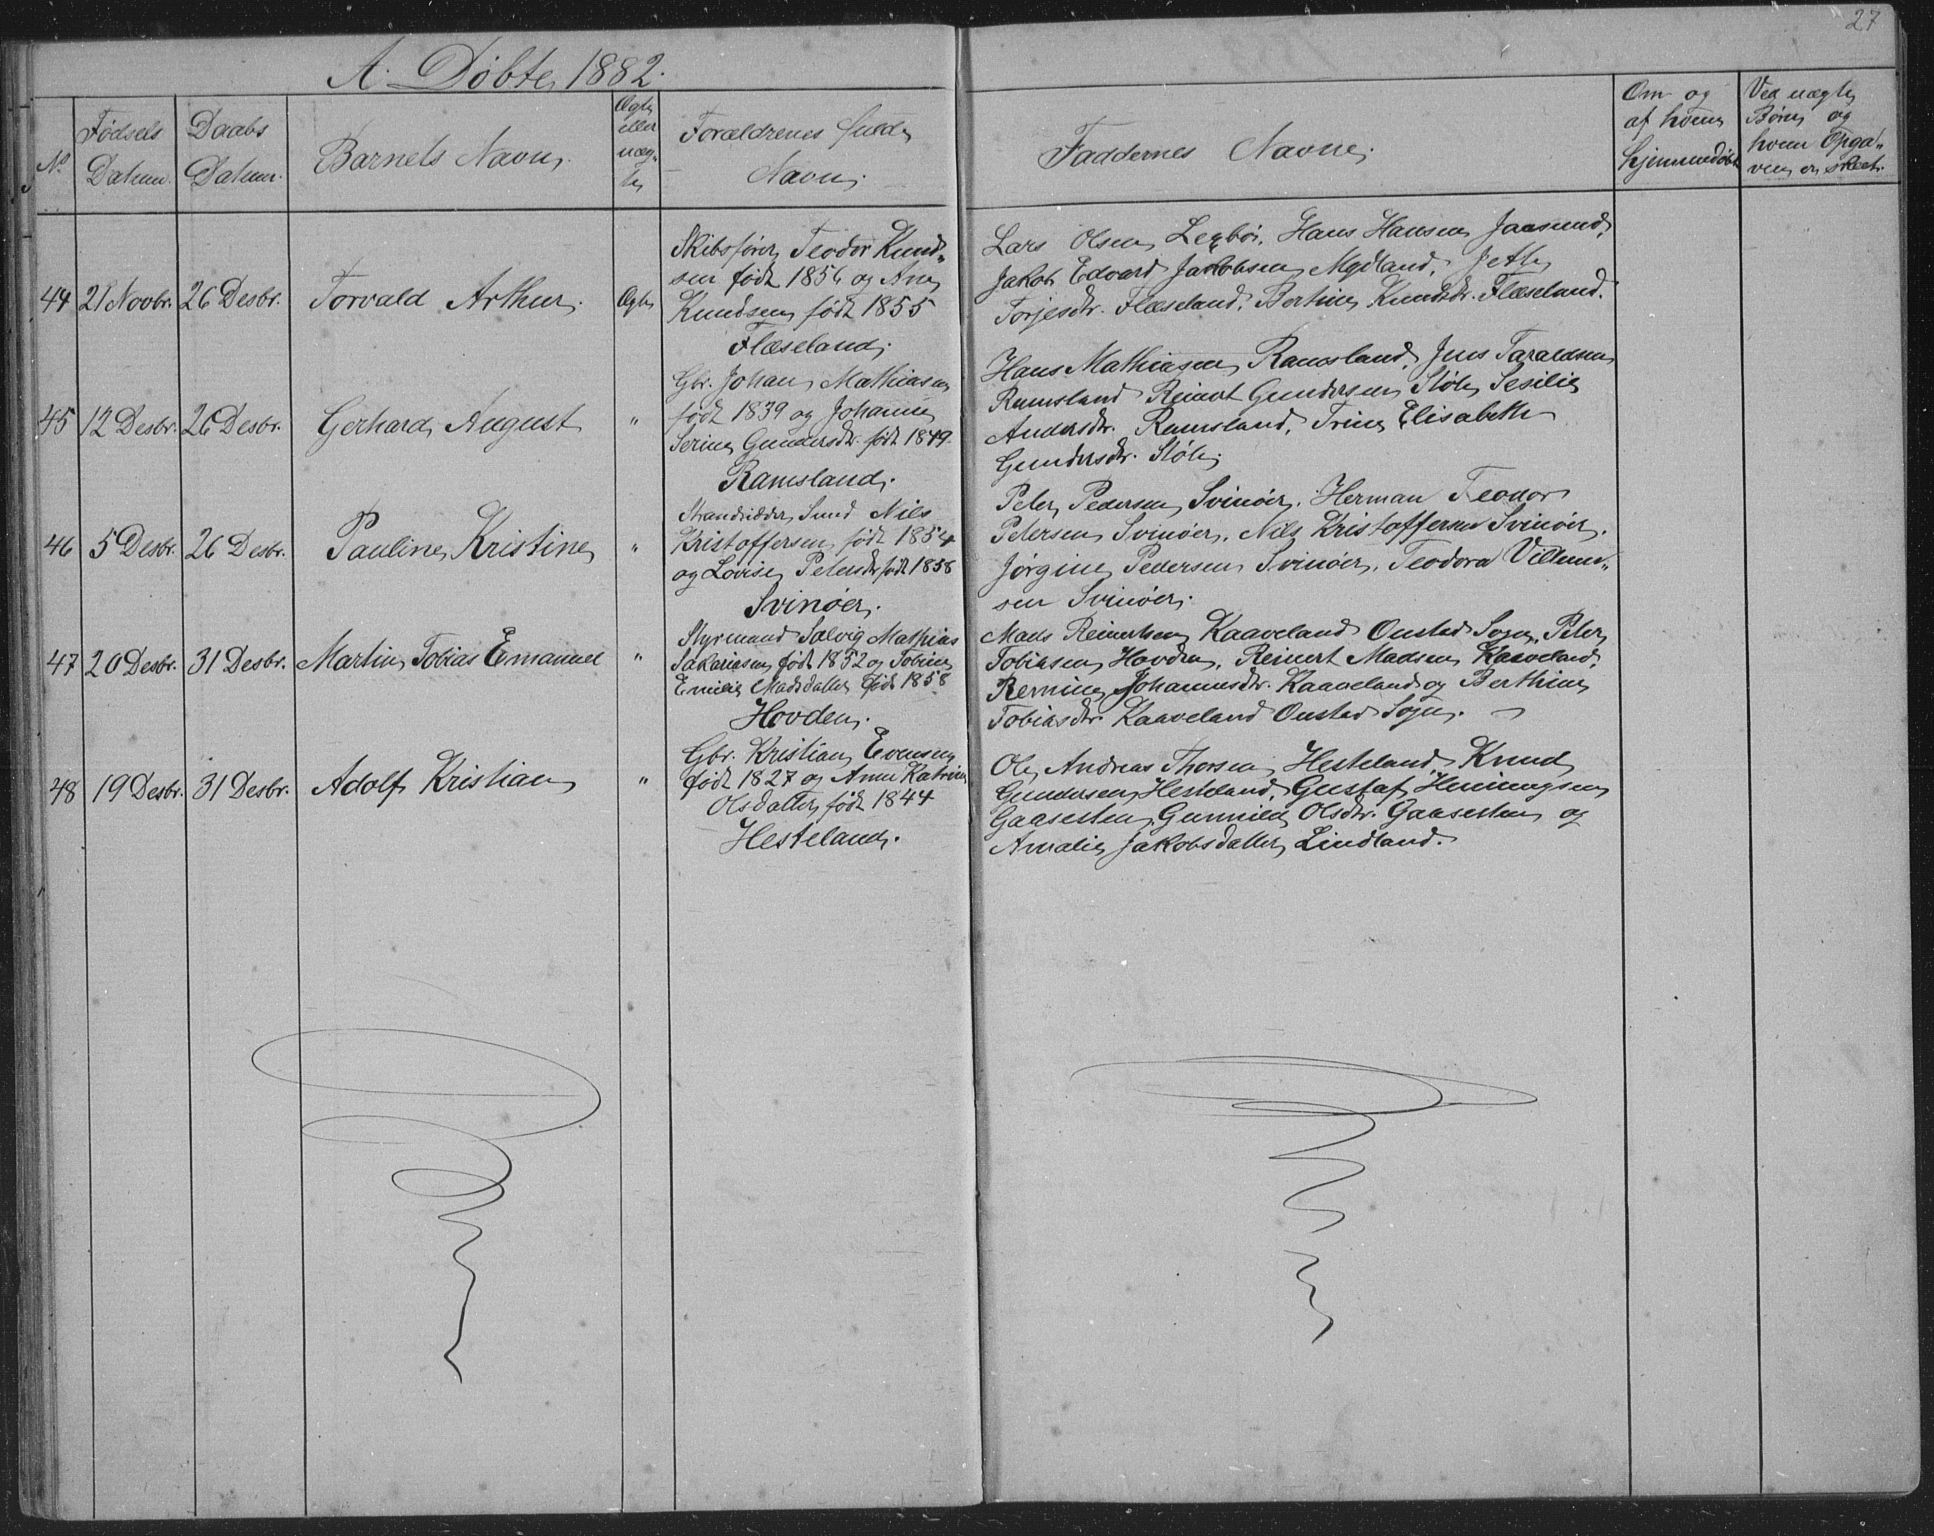 27
A. Døbte 1882.
No
Fødsels Datum.
Daabs Datum.
Barnets Navn.
Ægte eller uægte
Forældrenes fulde
Navn.
Faddernes Navne.
Om og af hvem hjemmedøbt
Ved uægte Børn og hvem Opgaven er skeet.
44 21 Novbr. 26 Desbr. Torvald Arthur. Ægte
Skibsfører Teodor Knud-
sen født 1856 og Ane
Knudsen født 1855
Flæseland.
Lars Olsen Hans Hansen Jaasund,
Jakob Edvard Jakobsen Mydland,
Torjesdtr. Flæseland, Bertine Knudsdtr. Flæseland.
45 12 Desbr. 26 Desbr. Gerhard August "
Gbr. Johan Mathiasen
født 1839 og Johanne
Serine Gundersdtr. født 1849.
Ramsland.
Hans Mathiasen Ramsland, Jens Taraldsen
Ramsland Reinert Gundersen Støle, Sesilie
Andersdtr. Ramsland, Trine Elisabeth
Gundersdtr. Støle.
46 5 Desbr. 26 Desbr. Pauline Kristine "
Strandsidder Smed Nils
Kristoffersen født 1854
og Lovise Petersdtr født 1858
Svinøer.
Peter Pedersen Svinøer, Herman Teodor
Petersen Svinøer, Nils Kristoffersen Svinøer,
Jørgine Pedersen Svinøer, Teodora Villum-
sen Svinøer.
47 20 Desbr. 31 Desbr. Martin Tobias Emanuel "
Styrmand Salvig Mathias
Sakariasen født 1852 og Tobine
Emilie Madsdatter født 1858
Hovden.
Mads Reinertsen Kaaveland Ousted Sogn, Peter
Tobiasen Hovden, Reinert Madsen Kaaveland,
Johannesdtr. Kaaveland og Berthine
Tobiasdtr. Kaaveland Ousted Sogn.
48 19 Desbr. 31 Desbr. Adolf Kristian "
Gbr. Kristian Evensen
født 1827 og Anne Katrine
Olsdatter født 1844
Hesteland.
Ole Andreas Thorsen Hesteland Knud
Gundersen Hesteland, Gustaf Henningsen
Gaasesten, Gunnild Olsdtr. Gaasesten og
Amalie Jakobsdatter Lindland.